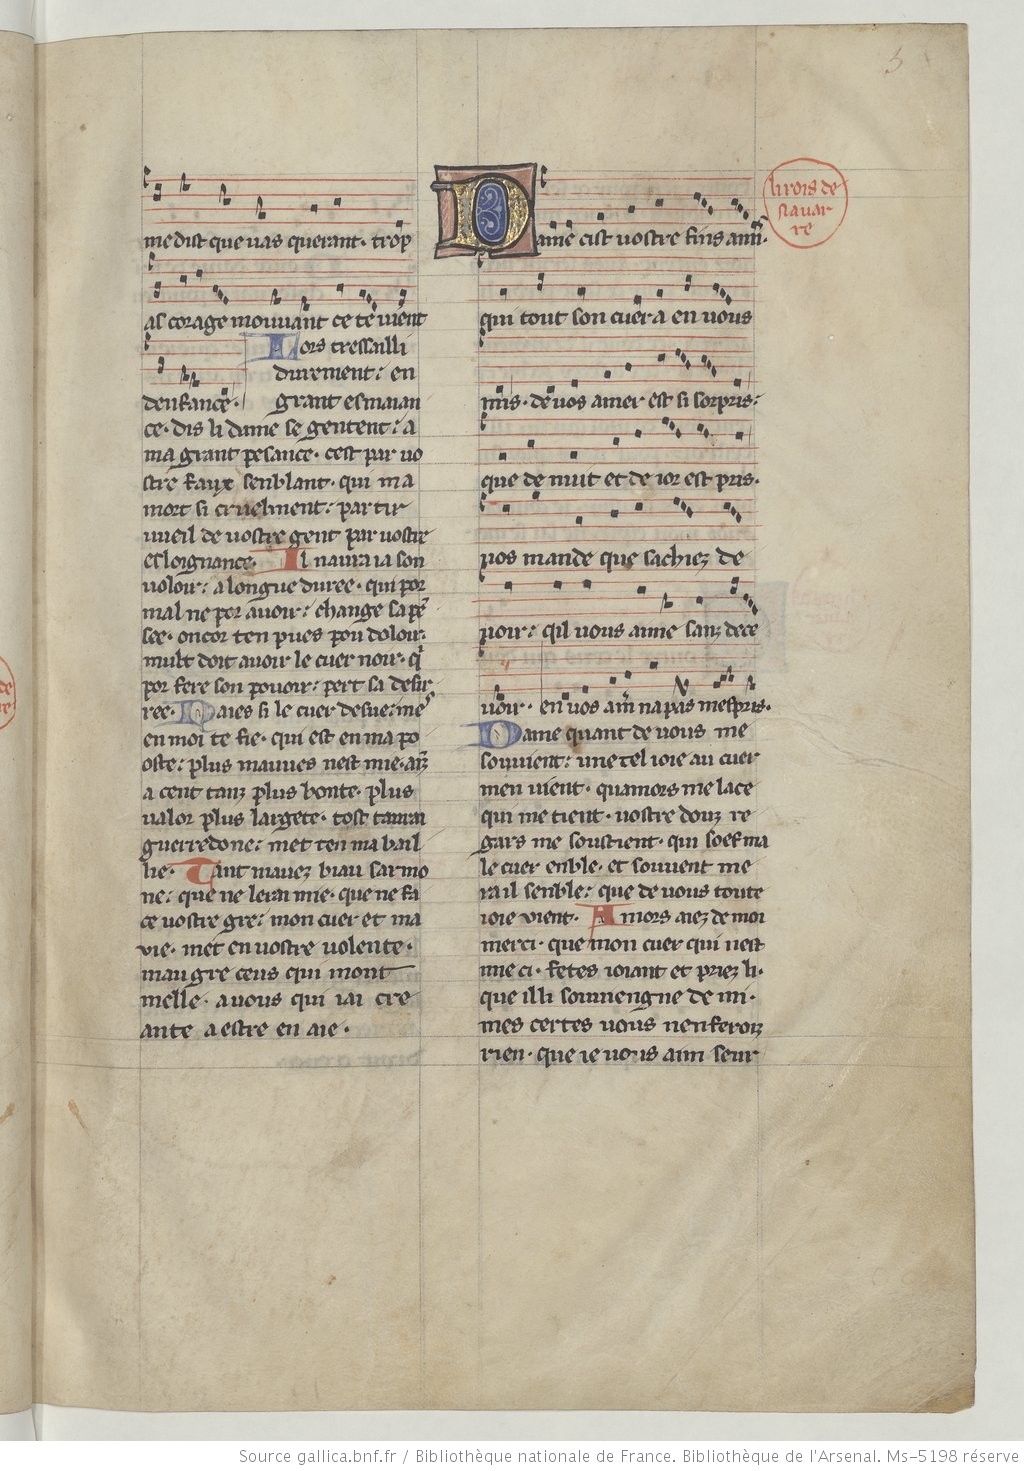 5
me dist que uas querant. trop
as corage mouuant ce te uient
Lors tressailli
durement: en
denfance. grant esmaian
ce. dis li dame se gentent: a
ma grant pesance. cest par uo
stre faux senblant. qui ma
mort si cruelment: partir
uueil de uostre gent par uostre
esloignance. Il naura ia son
uoloir: a longue duree. qui por
mal ne por auoir: change sa pē
see. oncor ten pues pou doloir.
mult doit auoir le cuer noir. q̇
por fere son pouoir: pert sa desir
ree.
en moi te fie. qui est en ma po
oste: plus mauues nest mie.
a cent tanz plus bonte. plus
ualor plus largete. tost
guerredone: met ten ma bail
lie. Tant mauez biau sarmo
ne: que ne lerai mie. que ne fa
ce uostre gre: mon cuer et ma
vie. met en uostre uolente.
maugre ceus qui mont
melle. a uous qui iai cre
ante a estre en aie.
li rois de
nauar
re
Dame cist uostre fins am̄.
qui tout son cuer a en uous
mis. de uos amer est si sorpris:
que de nuit et de ior est pris.
uos mande que sachiez de
uoir: qil uous aime sanz dece
uoir. en uos am̄ na pas mespris.
Dame quant de uous me
souuient: une tel ioie au cuer
men uient. quamors me lace
qui me tient. uostre douz re
gars me soustient. qui soef ma
le cuer enble. et souuent me
rail senble: que de uous toute
ioie vient. Amors aiez de moi
merci. que mon cuer qui nest
mie ci. fetes ioiant et priez li.
que illi souuiengne de mi.
mes certes uous nen feroiz
rien. que ie uous aim seur
Source gallica.bnf.fr / Bibliothèque nationale de France. Bibliothèque de l'Arsenal. Ms-5198 réserve